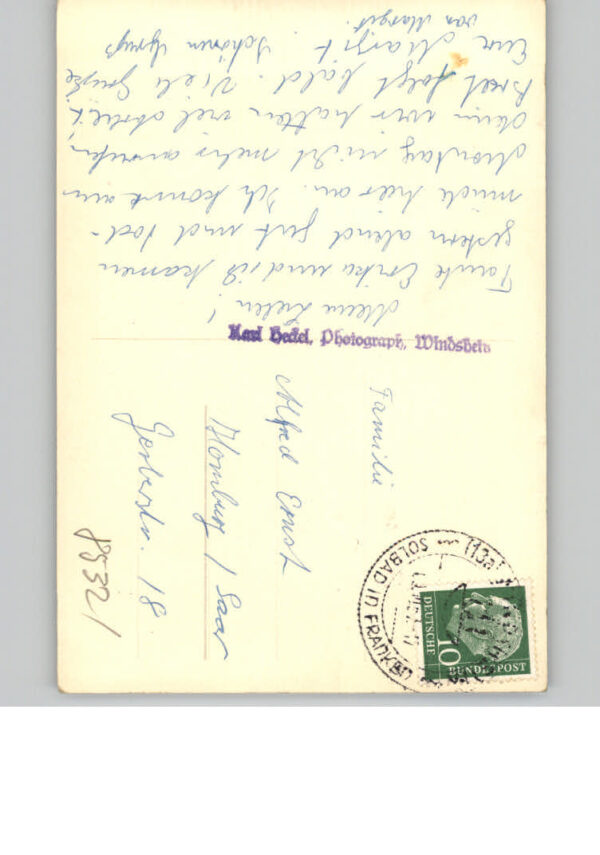 Meine Lieben!
Tante Erika und ich kamen
gestern abend gut und tod-
müde hier an. Ich komme am
Montag nicht mehr
denn wir hatten viel
Brief folgt bald. Viele Grüße
Eure Margit. Schönen Gruß
von Margit.
Karl Heckel, Photograph, Windsheim
Familie
Alfred Ernst
Homburg / Saar
Gerberstr. 18
8532/
(13a)
SOLBAD IN FRANKEN
DEUTSCHE
BUNDESPOST
10